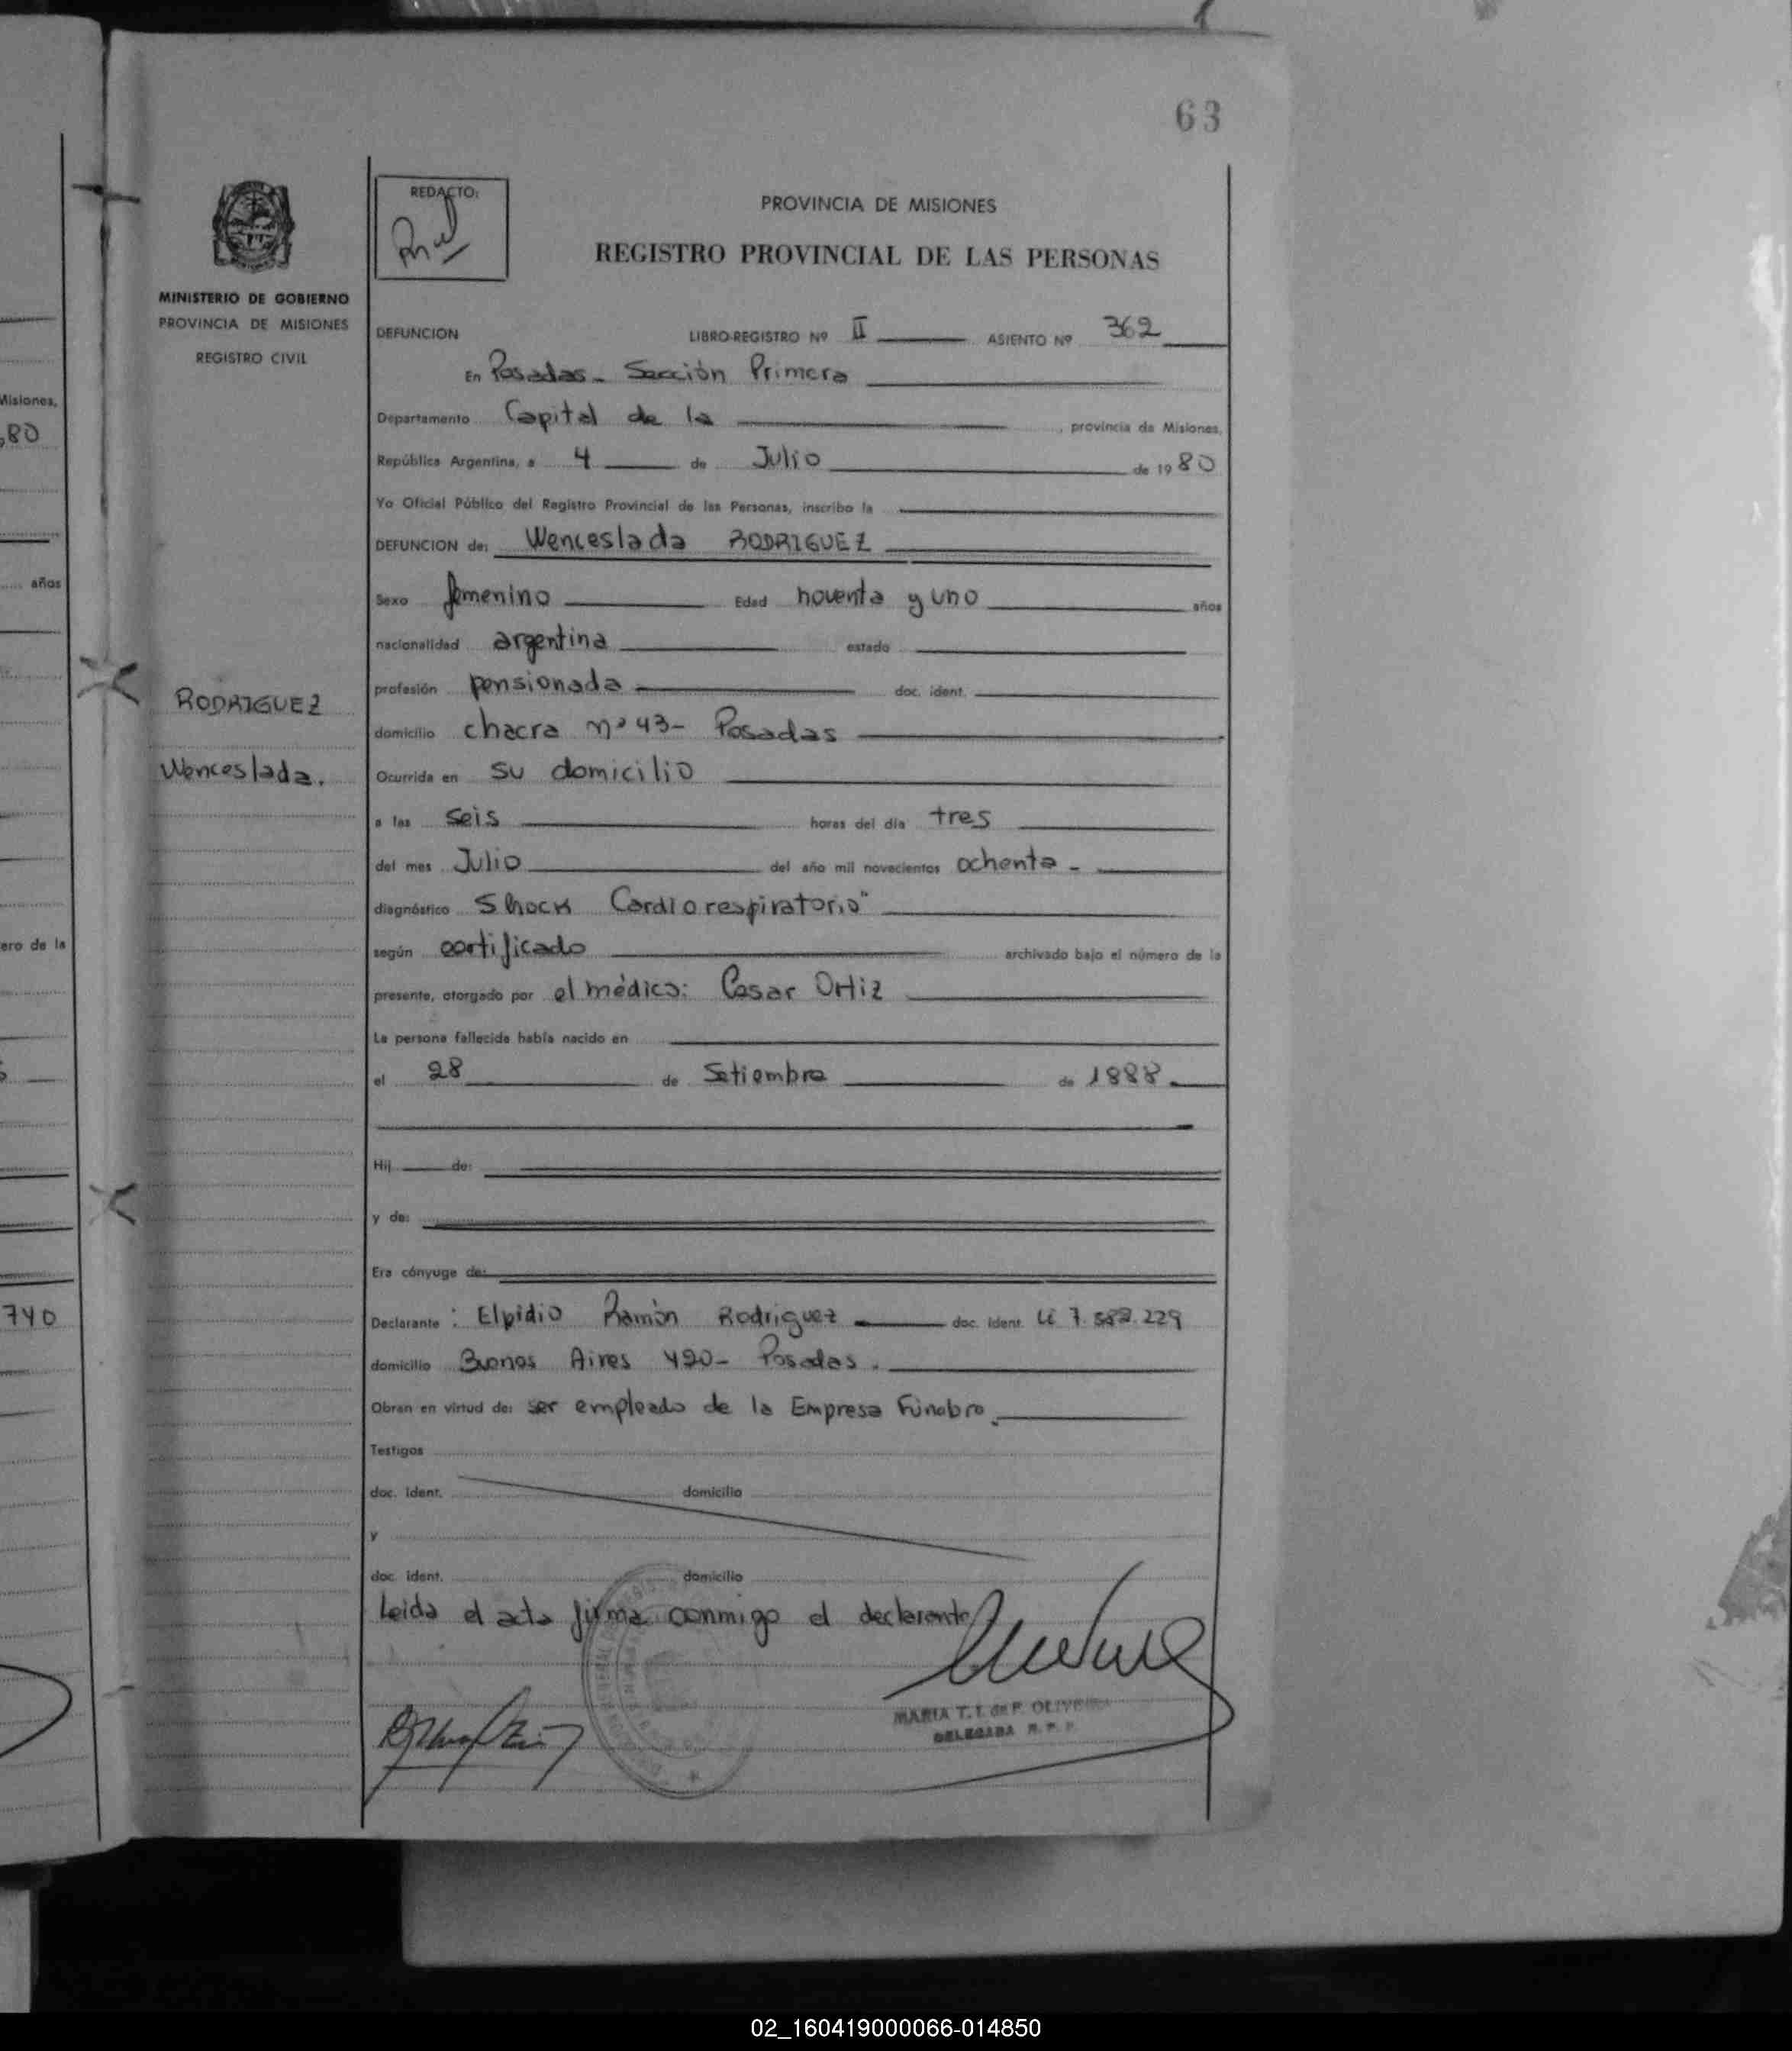 63
REDACTO:
PROVINCIA DE MISIONES
REGISTRO PROVINCIAL DE LAS PERSONAS
MINISTERIO DE GOBIERNO
PROVINCIA DE MISIONES
REGISTRO CIVIL
DEFUNCION LIBRO-REGISTRO Nº II ASIENTO Nº 362
En Posadas - Sección Primera
Departamento Capital de la , provincia de Misiones,
República Argentina, a 4 de Julio de 1980
Yo Oficial Público del Registro Provincial de las Personas, inscribo la
DEFUNCION de: Wenceslada RODRIGUEZ
Sexo femenino Edad noventa y uno años
nacionalidad argentina estado
RODRIGUEZ
Wenceslada.
profesión pensionada doc. ident.
domicilio chacra nº 43- Posadas
Ocurrida en su domicilio
a las seis horas del día tres
del mes Julio del año mil novecientos ochenta -
diagnóstico Shock Cardiorespiratorio"
según certificado archivado bajo el número de la
presente, otorgado por el médico: Cesar Ortiz
La persona fallecida había nacido en
el 28 de Setiembre de 1888.
Hij de:
y de:
Era cónyuge de:
Declarante : Elpidio Ramón Rodriguez doc. ident. LE 7.582.229
domicilio Buenos Aires 420- Posadas.
Obran en virtud de: ser empleado de la Empresa Fúnebre.
Testigos
doc. ident. domicilio
y
doc. ident. domicilio
Leida el acta firma conmigo el declarante
MARIA T. I. de F. OLIVEIRA
DELEGADA R. P. P.
Misiones,
80
años
ero de la
740
02_160419000066-014850